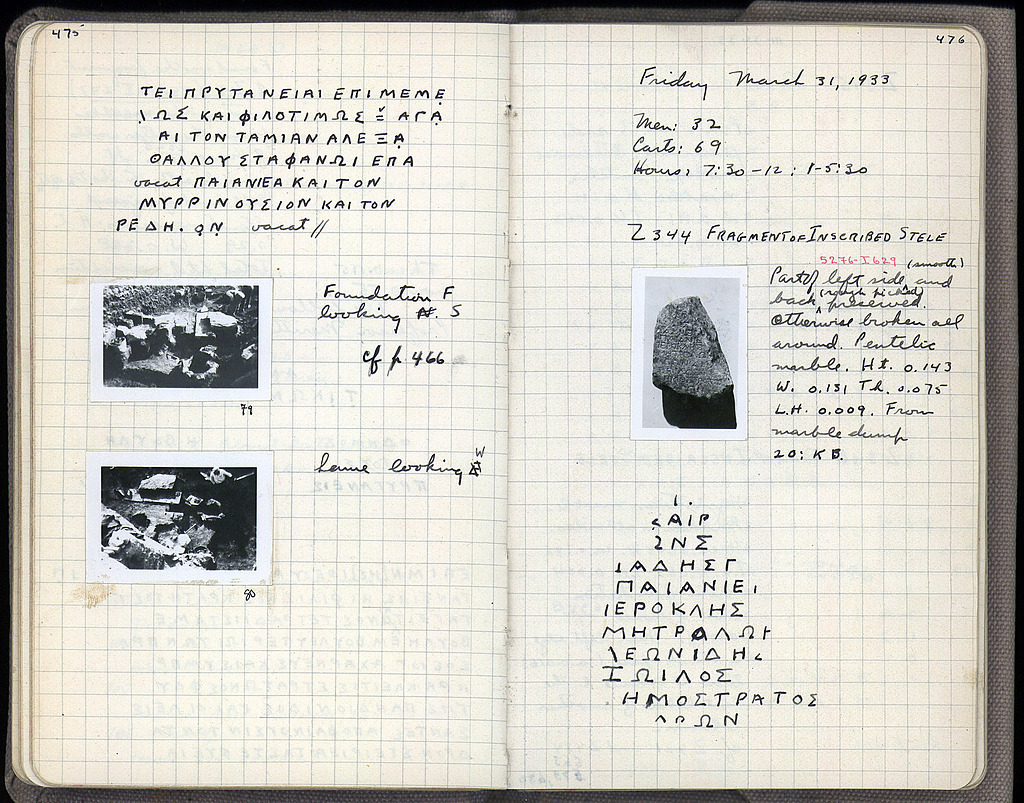 475
ΤΕΙ ΠΡΥΤΑΝΕΙΑΙ ΕΠΙΜΕΜΕ̣
\ΩΣ ΚΑΙ ΦΙΛΟΤΙΜΩΣ Ξ ΑΓΑ̣
ΑΙ ΤΟΝ ΤΑΜΙΑΝ ΑΛΕΞΑ̣
ΘΑΛΛΟΥ ΣΤΑΦΑΝΩΙ ΕΠΑ
vacat ΠΑΙΑΝΙΕΑ ΚΑΙ ΤΟΝ
ΜΥΡΡΙΝΟΥΣΙΟΝ ΚΑΙ ΤΟΝ
vacat //
Foundation F
looking S
cf p. 466
79
Same looking W
80
476
Friday March 31, 1933
Men: 32
Carts: 69
Hours: 7:30-12; 1-5:30
Σ 344 FRAGMENT OF INSCRIBED STELE
5276-I 629 (smooth)
Part of left side and
(rough picked)
back preserved.
Otherwise broken all
around. Pentelic
marble. Ht. 0.143
W. 0.131 Th. 0.075
L.H. 0.009. From
marble dump
20: ΚΒ.
ΑΙΡ
ΝΣ
ΑΔΗΣΓ
ΠΑΙΑΝΙΕΙ
ΙΕΡΟΚΛΗΣ
ΜΗΤΡΟΛΩΙ
\ΕΩΝΙΔΗΣ
ΙΩΙΛΟΣ
.ΗΜΟΣΤΡΑΤΟΣ
ΩΝ